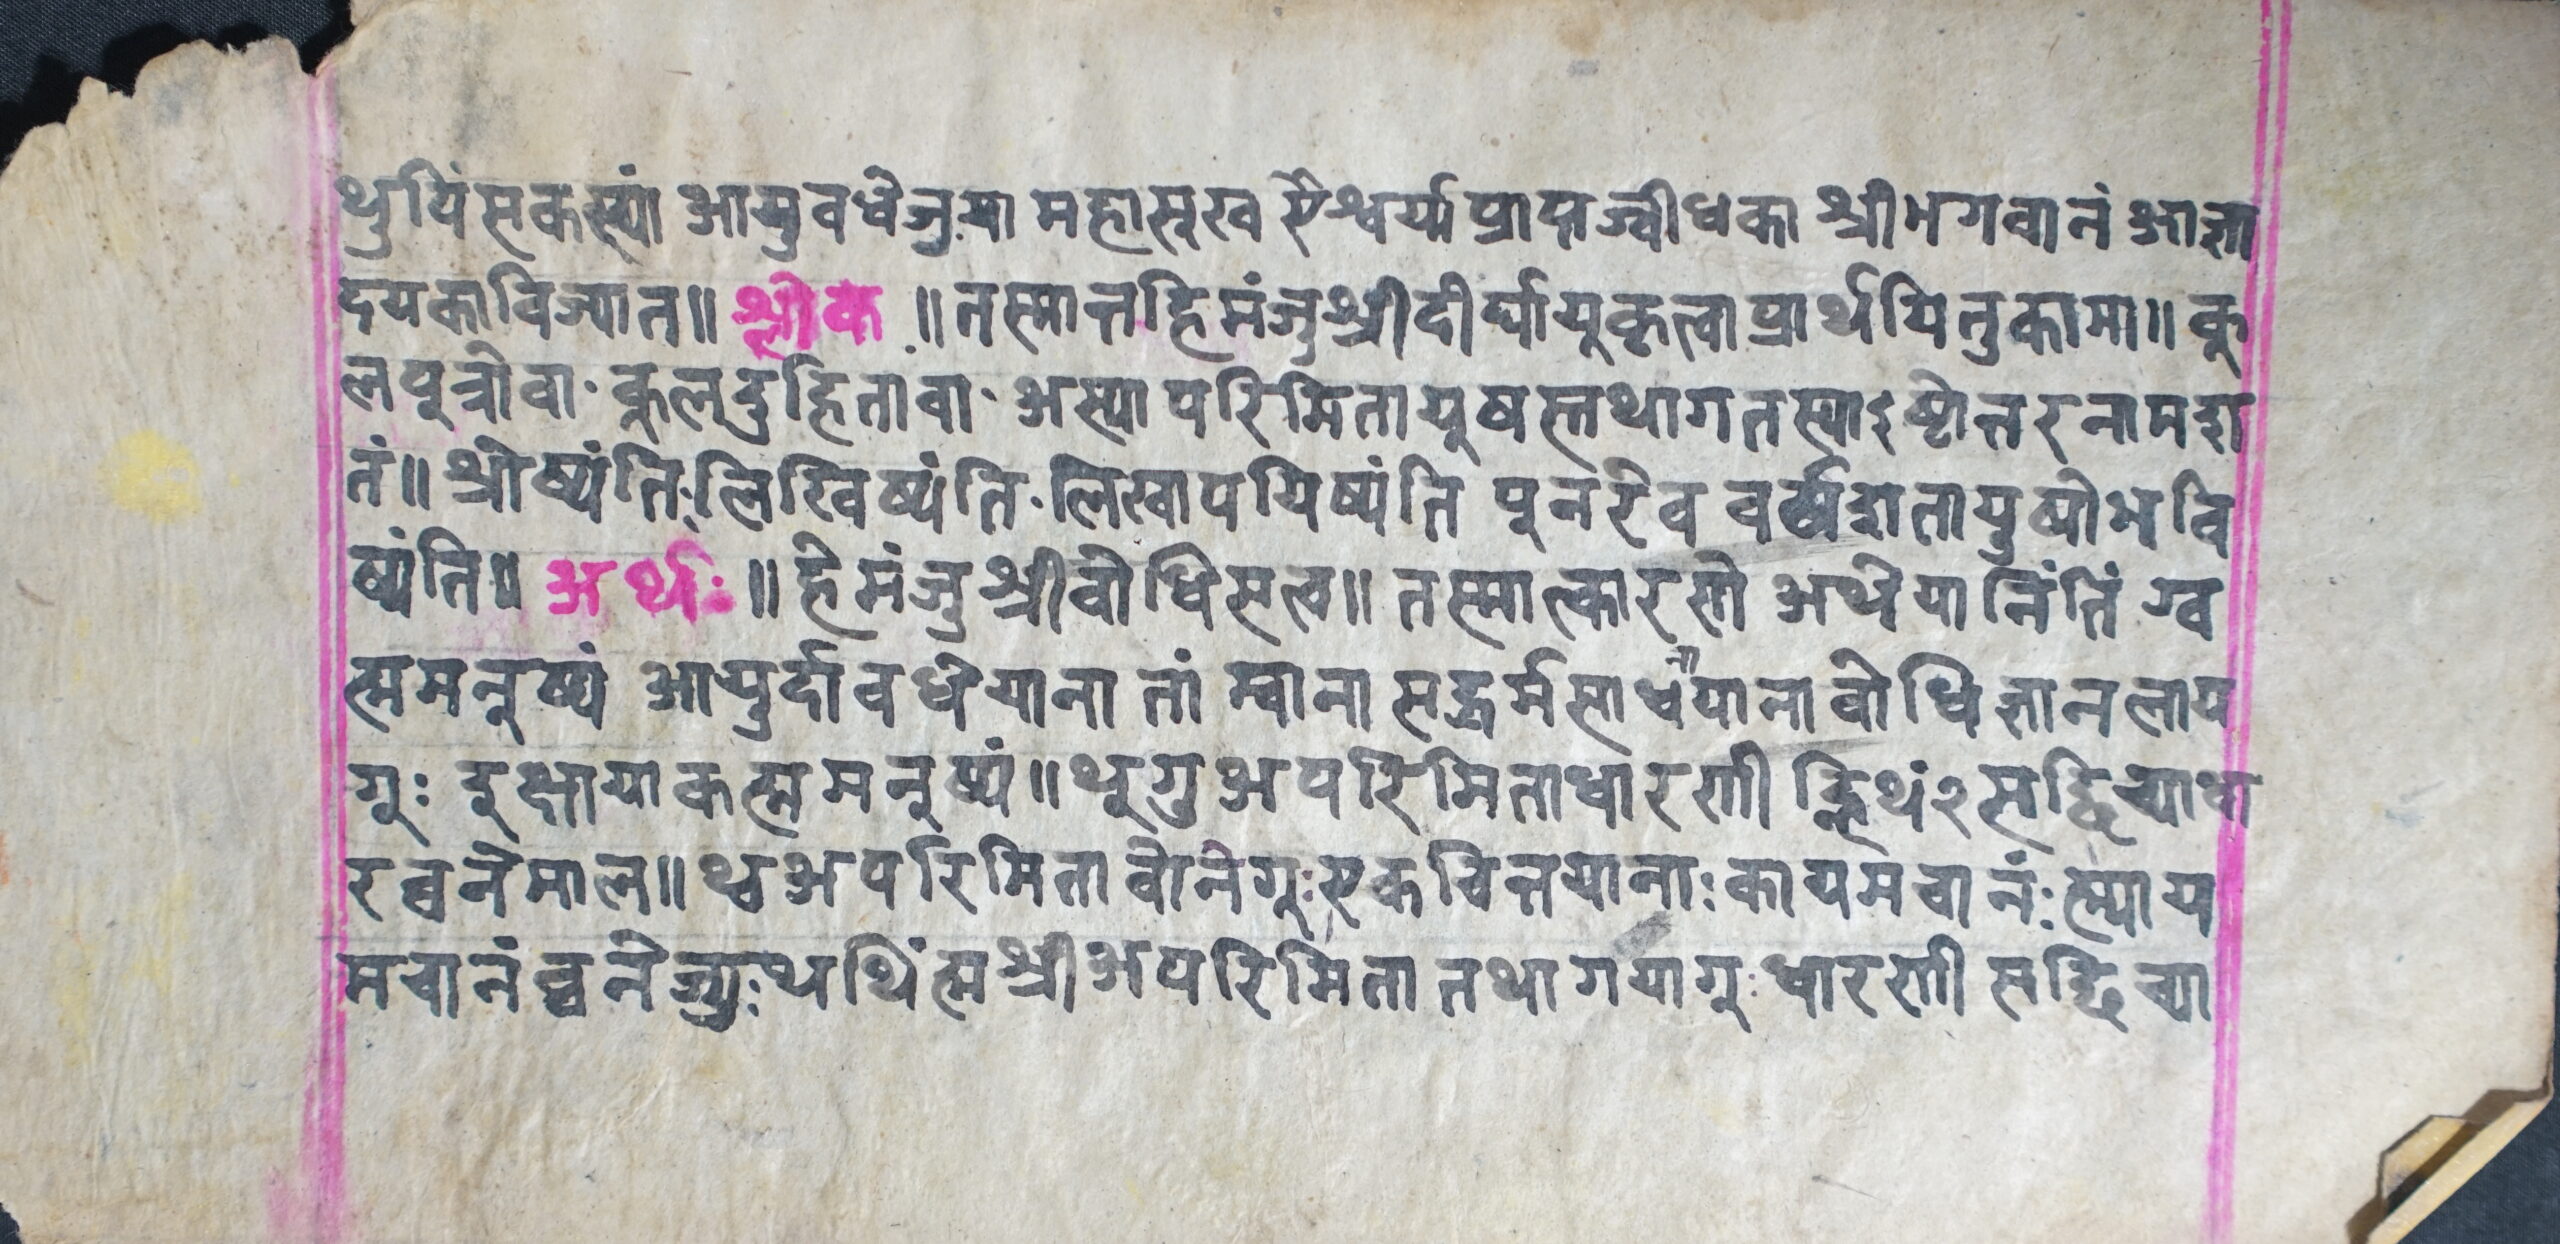 थुयिंसकस्यां आयुवधेजुया महासुख ऐश्वर्य्य प्राप्नज्वीधका श्रीभगवानं आज्ञा
दयकाविज्यात॥ श्लोक ॥तस्मात्तर्हिमंजुश्रीदीर्घायुकृत्वाप्रार्थयितुकामा॥ कु
लपुत्रोवा· कुलदुहितावा· अस्यापरिमितायुषस्तथागतस्याऽष्टोत्तरनामशा
तं॥ श्रोष्यंति·लिखिष्यंति·लिखापयिष्यंति पुनरेव वर्षशतायुषोभवि
ष्यंति॥ अर्थः ॥हेमंजुश्रीबोधिसत्व॥ तस्मात्कारणे अथेयानिंतिं ग्व
ह्ममनुष्यं आयुर्दावधेयाना तां म्वाना सद्धर्मसाधनैयानाबोधिज्ञानलाय
गुः दुक्षायाकह्ममनुष्यं॥थुगुअपरिमिताधारणी ह्निथं२सद्धिच्याधा
रब्वनेमाल॥थ्वअपरिमिताबोनेगुःएकचित्तयानाःकायमचानंःह्म्याय
मचानंब्वनेज्युःथथिंह्मश्रीअपरिमिता तथागयागुःधारणी सद्धिच्या